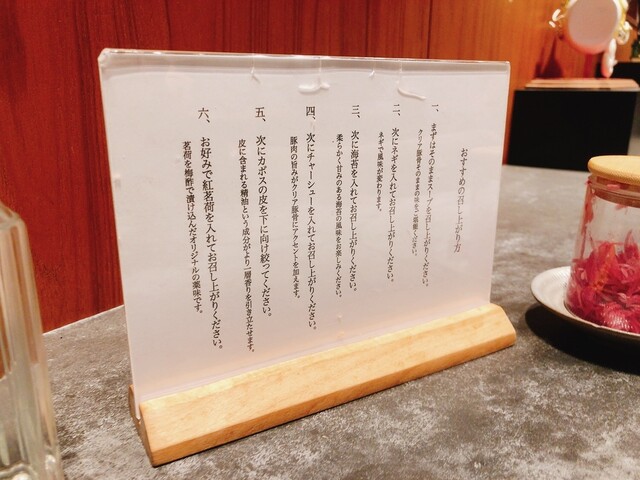 おすすめの召し上がり方
一、まずはそのままスープを召し上がりください。
クリア豚骨そのままの味をご堪能ください。
二、次にネギを入れてお召し上がりください。
ネギで風味が変わります。
三、次に海苔を入れてお召し上がりください。
柔らかく甘みのある海苔の風味をお楽しみください。
四、次にチャーシューを入れてお召し上がりください。
豚肉の旨みがクリア豚骨にアクセントを加えます。
五、次にカボスの皮を下に向け絞ってください。
皮に含まれる精油という成分がより一層香りを引き立たせます。
六、お好みで紅茗荷を入れてお召し上がりください。
茗荷を梅酢で漬け込んだオリジナルの薬味です。